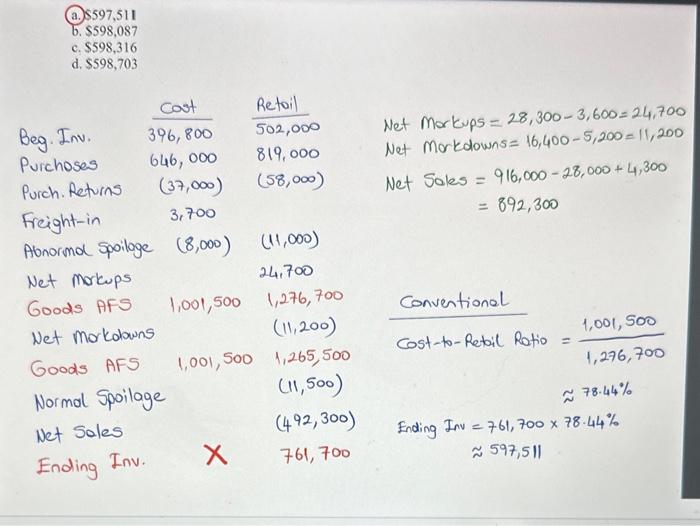 a. $597,511
b. $598,087
c. $598,316
d. $598,703
Cost Retail
Beg. Inv. 396,800 502,000
Purchases 646,000 819,000
Purch. Returns (37,000) (58,000)
Freight-in 3,700
Abnormal Spoilage (8,000) (11,000)
Net Markups 24,700
Goods AFS 1,001,500 1,276,700
Net Markdowns (11,200)
Goods AFS 1,001,500 1,265,500
Normal Spoilage (11,500)
Net Sales (492,300)
Ending Inv. X 761,700
Net Markups = 28,300 - 3,600 = 24,700
Net Markdowns = 16,400 - 5,200 = 11,200
Net Sales = 916,000 - 28,000 + 4,300
= 892,300
Conventional
Cost-to-Retail Ratio = 1,001,500
1,276,700
≈ 78.44%
Ending Inv = 761,700 x 78.44%
≈ 597,511